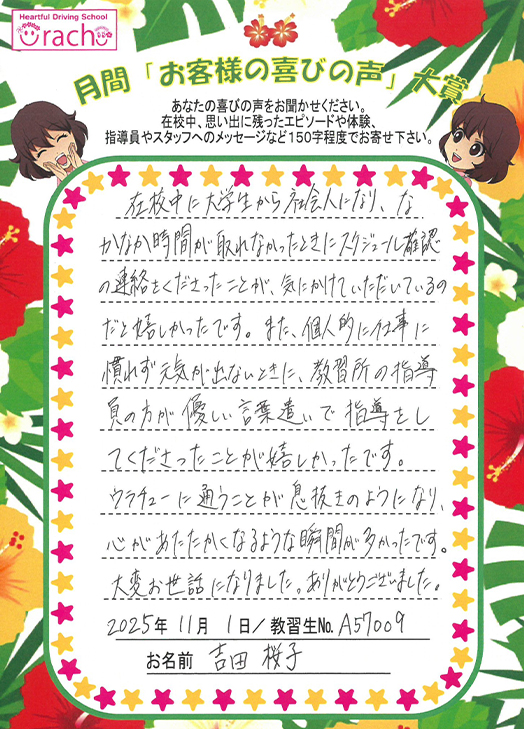 Heartful Driving School
Urachu
月間「お客様の喜びの声」大賞
あなたの喜びの声をお聞かせください。
在校中、思い出に残ったエピソードや体験、
指導員やスタッフへのメッセージなど150字程度でお寄せ下さい。
在校中に大学生から社会人になり、な
かなか時間が取れなかったときにスケジュール確認
の連絡をくださったことが、気にかけていただいているの
だと嬉しかったです。また、個人的に仕事に
慣れず元気が出ないときに、教習所の指導
員の方が優しい言葉遣いで指導をし
てくださったことが嬉しかったです。
ウラチューに通うことが息抜きのようになり、
心があたたかくなるような瞬間が多かったです。
大変お世話になりました。ありがとうございました。
2025年 11月 1日/教習生No. A57009
お名前 吉田 桜子